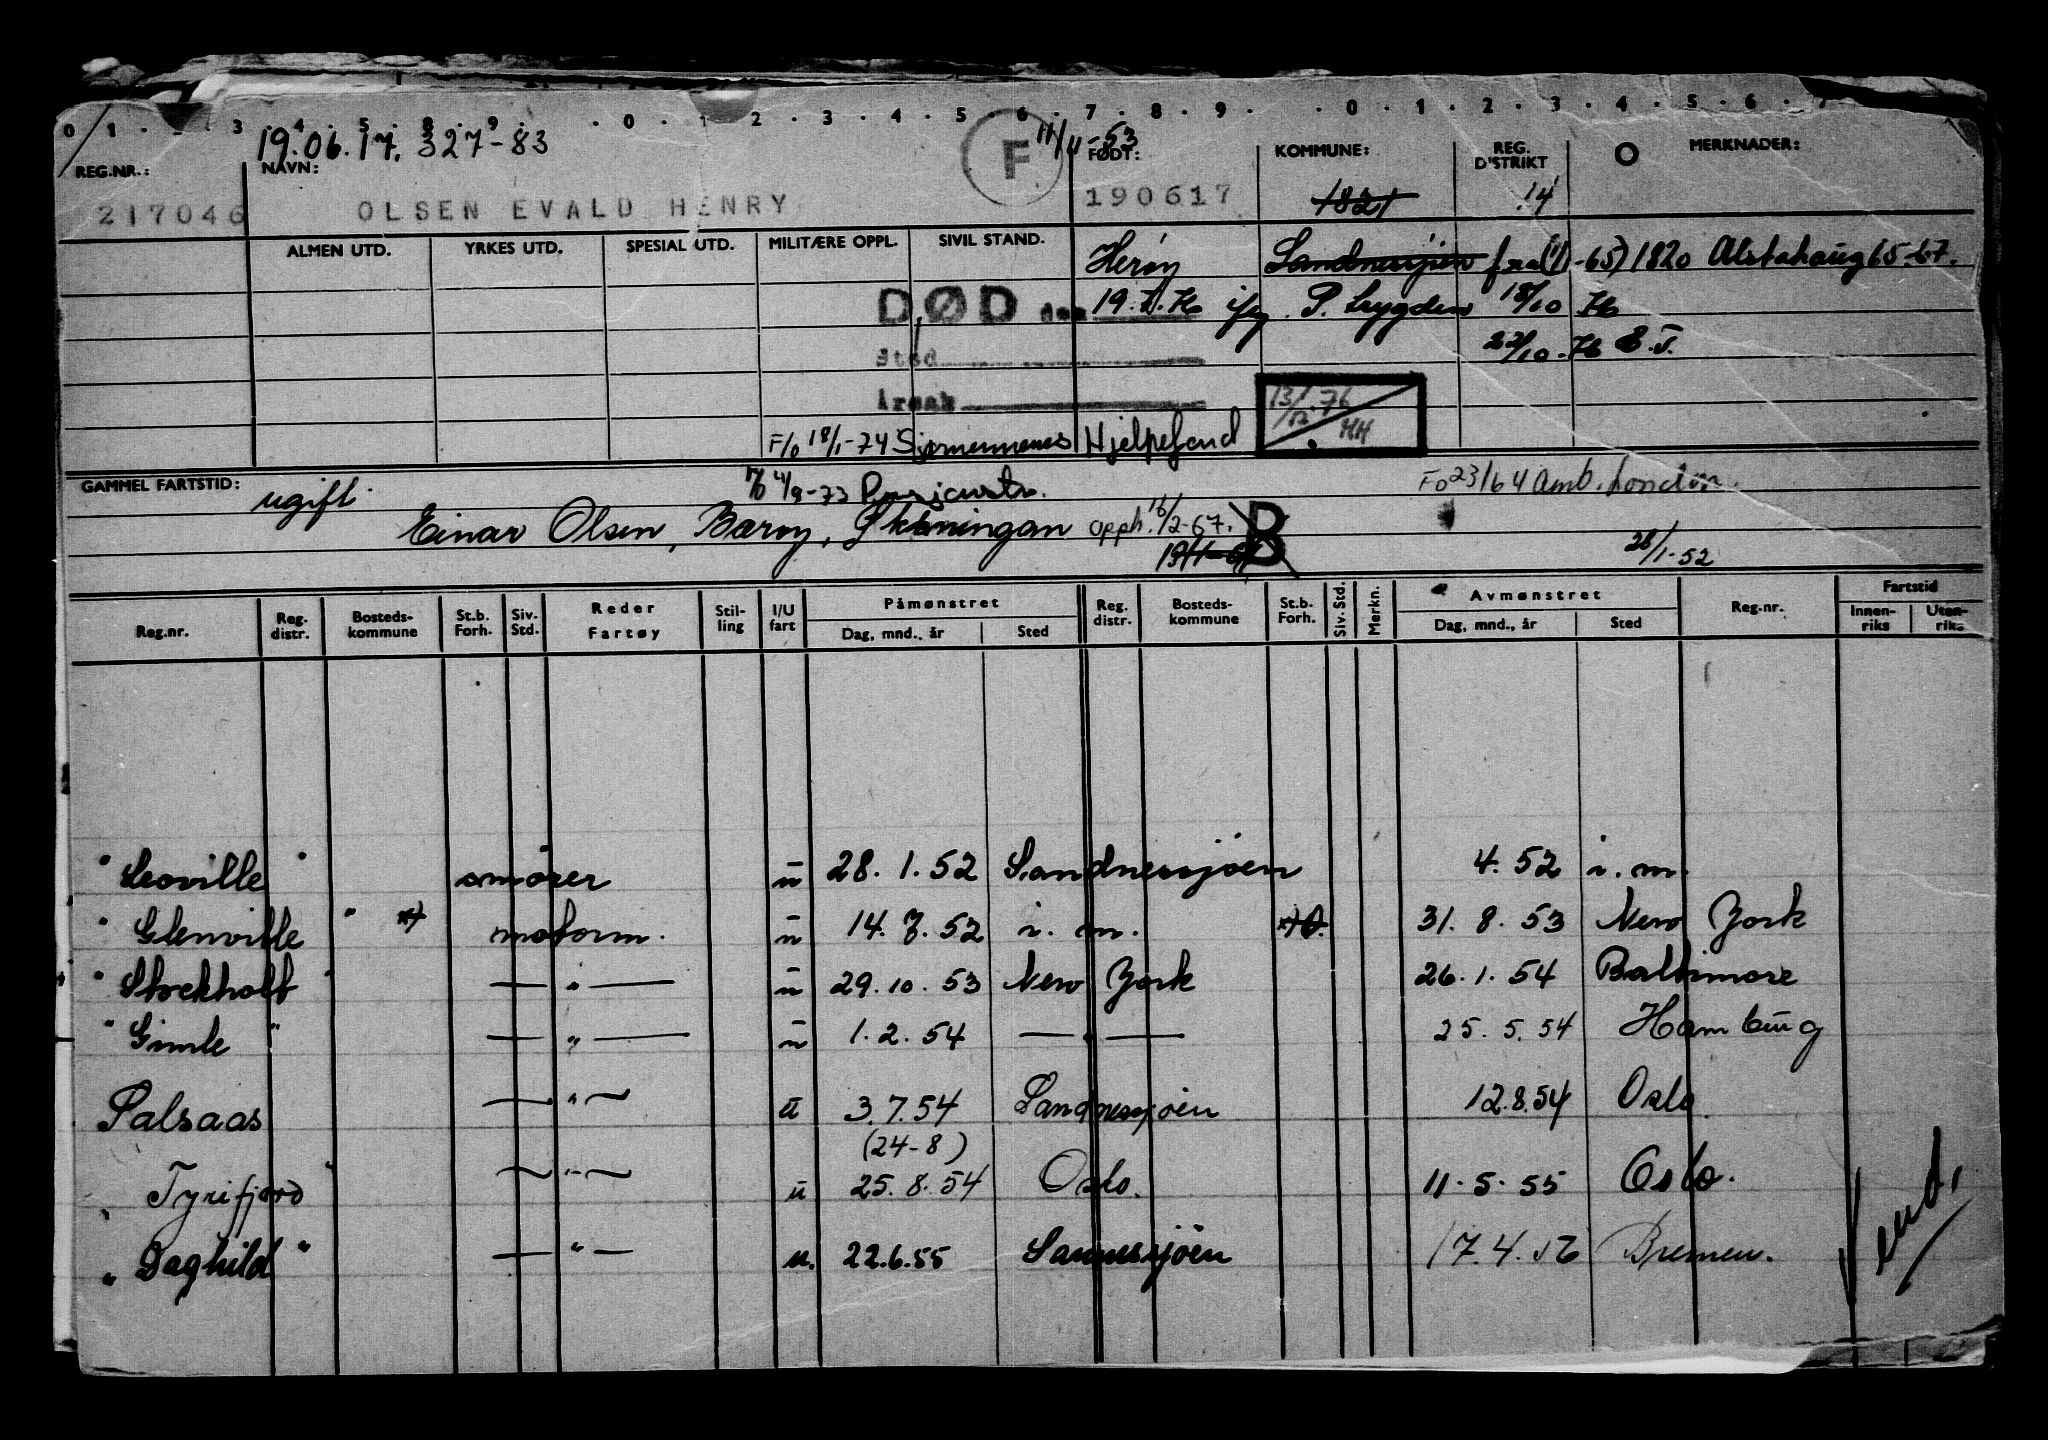 0 1 . 3 . 4 . 5 . 8 . 9 . . 0 . 1 2 . 3 . 4 . 5 . 6 . 7 . 8 . 9 . . 0 . 1 . 2 . 3 . 4 . 5 . 6 . 7
19.06.17. 327-83 F 11/11-53
REG.NR.: NAVN: FØDT: KOMMUNE: REG. DISTRIKT O MERKNADER:
217046 OLSEN EVALD HENRY 190617 1821 14
ALMEN UTD. YRKES UTD. SPESIAL UTD. MILITÆRE OPPL. SIVIL STAND. Herøy Sandnessjøen fra (1/1-65) 1820 Alstahaug 65-67.
DØD den 19.7.76 ifg. P. trygden 18/10 76
Sted 22/10-76 E.T.
Årsak 13/12.76 HH
F/o 18/1-74 Sjømennenes Hjelpefond
GAMMEL FARTSTID: ugift. F/o 4/9-73 Fo 23/6 4 Amb. London.
Einar Olsen, Barøy, opph. 16/2-67. B
28/1-52
Reg.nr. Reg. distr. Bosteds-kommune St.b. Forh. Siv. Std. Reder Fartøy Stil-ling I/U fart Påmønstret Dag, mnd., år Sted Reg. distr. Bosteds-kommune St.b. Forh. Siv. Std. Merkn. Avmønstret Dag, mnd., år Sted Reg.nr. Fartstid Innen-riks Uten-riks
"Leoville" smører u 28.1.52 Sandnessjøen 4.52 i.m.
"Glenville" x) motorm. u 14.7.52 i.m. x) O. 31.8.53 New York
"Stockholt" — " — u 29.10.53 New York 26.1.54 Baltimore
"Gimle" — " — u 1.2.54 — " — 25.5.54 Hamburg
Palsaas — " — u 3.7.54 Sandnessjøen 12.8.54 Oslo.
(24-8)
"Tyrifjord" — " — u 25.8.54 Oslo. 11-5-55 Oslo.
"Daghild" — " — u. 22.6.55 Sannessjöen 17.4.56 Bremen.
vend.